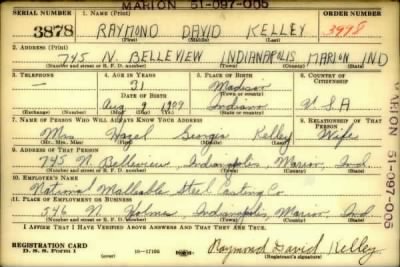 MARION 51-097-005
SERIAL NUMBER 1. NAME (Print) ORDER NUMBER
3878 RAYMOND DAVID KELLEY 3978
(First) (Middle) (Last)
2. ADDRESS (Print)
745 N. BELLEVIEW INDIANAPOLIS MARION IND
(Number and street or R. F. D. number) (Town) (County) (State)
3. TELEPHONE 4. AGE IN YEARS 5. PLACE OF BIRTH 6. COUNTRY OF CITIZENSHIP
— 31 Madison
DATE OF BIRTH (Town or county)
Aug 9 1909 Indiana U S A
(Exchange) (Number) (Mo.) (Day) (Yr.) (State or country)
7. NAME OF PERSON WHO WILL ALWAYS KNOW YOUR ADDRESS 8. RELATIONSHIP OF THAT PERSON
Mrs Hazel Georgia Kelley Wife
(Mr., Mrs., Miss) (First) (Middle) (Last)
9. ADDRESS OF THAT PERSON
745 N. Belleview, Indianapolis, Marion, Ind.
(Number and street or R. F. D. number) (Town) (County) (State)
10. EMPLOYER'S NAME
National Malleable Steel Casting Co
11. PLACE OF EMPLOYMENT OR BUSINESS
546 N Holmes Indianapolis, Marion, Ind.
(Number and street or R. F. D. number) (Town) (County) (State)
I AFFIRM THAT I HAVE VERIFIED ABOVE ANSWERS AND THAT THEY ARE TRUE.
REGISTRATION CARD
D. S. S. Form 1 (over) 16—17105 Raymond David Kelley
(Registrant's signature)
MARION 51-097-005